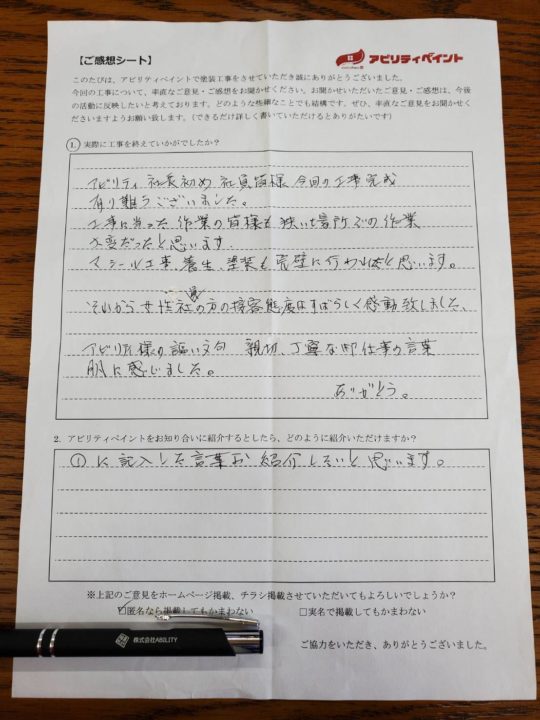 【ご感想シート】
アビリティペイント
このたびは、アビリティペイントで塗装工事をさせていただき誠にありがとうございました。
今回の工事について、率直なご意見・ご感想をお聞かせください。お聞かせいただいたご意見・ご感想は、今後
の活動に反映したいと考えております。どのような些細なことでも結構です。ぜひ、率直なご意見をお聞かせく
ださいますようお願い致します。(できるだけ詳しく書いていただけるとありがたいです)
1. 実際に工事を終えていかがでしたか?
アビリティ 社長初め 社員皆様 今回の工事完成
有り難うございました。
工事に当った 作業の皆様も 狭い場所での作業
大変だったと思います.
シール工事、養生、塗装も完壁に行われたと思います。
それから女性社員の方の接客態度はすばらしく感動致しました、
アビリティ様の謳い文句 親切、丁寧な御仕事の言葉
肌に感じました。
ありがとう。
2. アビリティペイントをお知り合いに紹介するとしたら、どのように紹介いただけますか?
①に記入した言葉お紹介したいと思います。
※上記のご意見をホームページ掲載、チラシ掲載させていただいてもよろしいでしょうか?
☑匿名なら掲載してもかまわない □実名で掲載してもかまわない
株式会社ABILITY
ご協力をいただき、ありがとうございました。